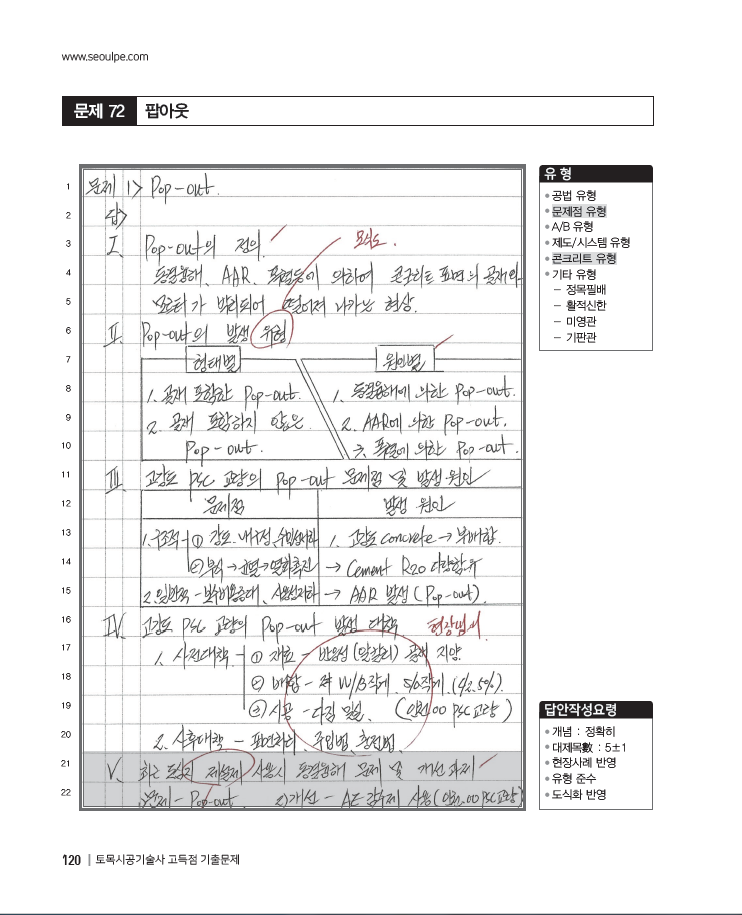 www.seoulpe.com
문제 72 팝아웃
1 문제 1> Pop-out.
2 답>
3 I. Pop-out의 정의. 모식도.
4 동결융해, AAR, 폭렬등에 의하여 콘크리트 표면의 골재와
5 모르타가 박리되어 떨어져 나가는 현상.
6 II. Pop-out의 발생 유형
7 형태별 원인별
8 1. 골재 포함한 Pop-out. 1. 동결융해에 의한 Pop-out.
9 2. 골재 포함하지 않은 2. AAR에 의한 Pop-out.
10 Pop-out. 3. 폭렬에 의한 Pop-out.
11 III. 고강도 PSC 교량의 Pop-out 문제점 및 발생 원인
12 문제점 발생 원인
13 1. 구조적 ① 강도. 내구성, 수밀성저하 1. 고강도 concrete → 부배합.
14 ② 부식 → 균열 → 열화촉진 → Cement R2O 다량함유
15 2. 일반적 - 보수비용증대, 사용성저하 → AAR 발생 (Pop-out).
16 IV. 고강도 PSC 교량의 Pop-out 발생 대책 현장명시
17 1. 사전대책 ① 재료 - 반응성(알칼리) 골재 지양.
18 ② 배합 - W/B작게. S/a작게.
19 ③ 시공 - 다짐 밀실. (인천00 PSC교량)
20 2. 사후대책 - 표면처리, 주입법, 충전법.
21 V. 최근 도심지 제설제 사용시 동결융해 문제 및 개선 과제
22 1) 문제 - Pop-out 2) 개선 - AE감수제 사용 (인천00 PSC교량)
유 형
• 공법 유형
• 문제점 유형
• A/B 유형
• 제도/시스템 유형
• 콘크리트 유형
• 기타 유형
– 정목필배
– 활적신한
– 미영관
– 기판관
답안작성요령
• 개념 : 정확히
• 대제목數 : 5±1
• 현장사례 반영
• 유형 준수
• 도식화 반영
120 | 토목시공기술사 고득점 기출문제